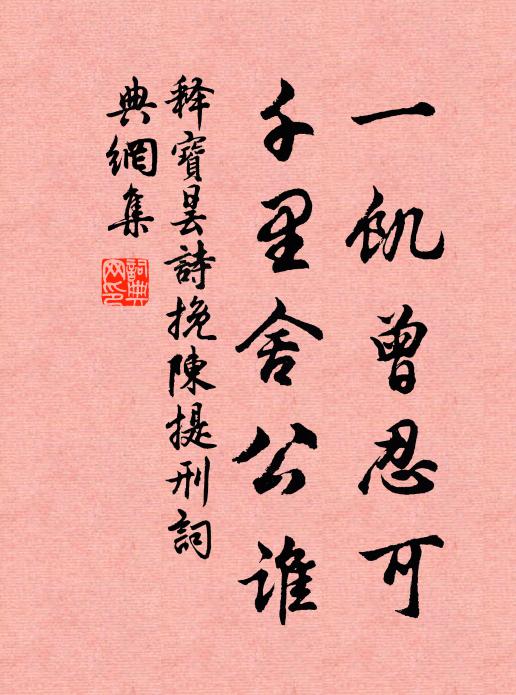 一飢曾忍可
千里舍公誰
释寶曇詩挽陳提刑詞
典網集
詞典網印